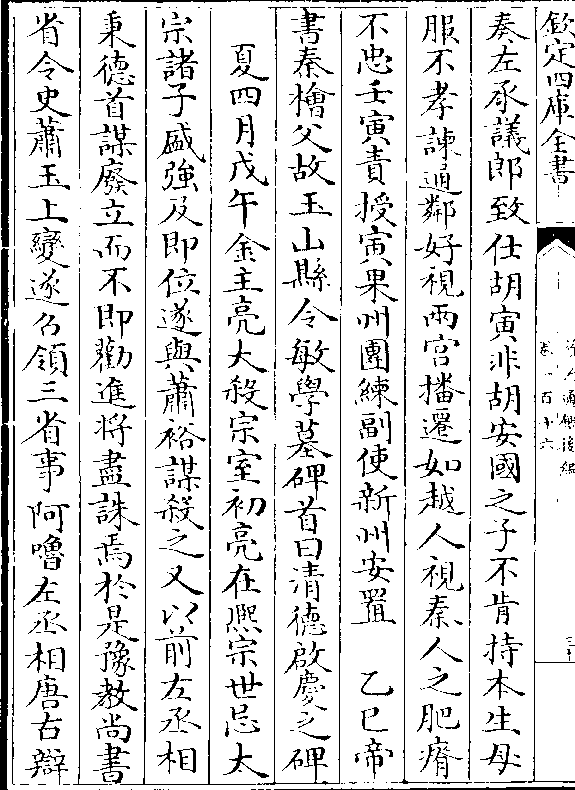 欽定四庫全書
資治通鑑後編
卷一百十六
奏左承議郎致仕胡寅非胡安國之子不肯持本生母
服不孝諫通鄰好視兩宫播遷如越人視秦人之肥瘠
不忠壬寅責授寅果州團練副使新州安置　乙巳帝
書秦檜父故玉山縣令敏學墓碑首曰清德啟慶之碑
夏四月戊午金主亮大殺宗室初亮在熈宗世忌太
宗諸子盛強及即位遂與蕭裕謀殺之又以前左丞相
秉德首謀廢立而不即勸進將盡誅焉於是豫教尚書
省令史蕭玉上變遂召領三省事阿嚕左丞相唐古辯